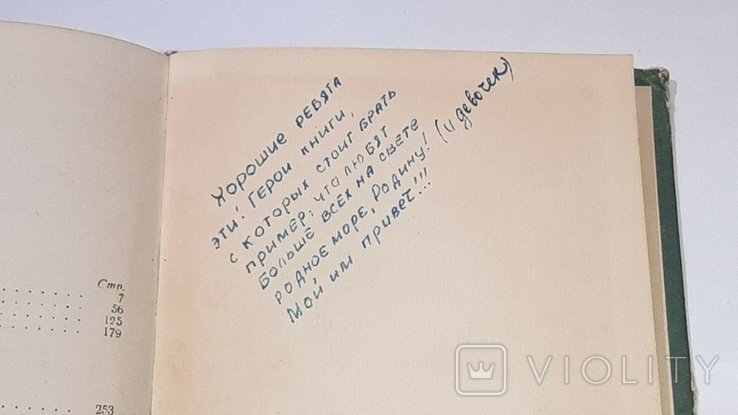 Хорошие ребята
эти! Герои книги,
с которых стоит брать
пример; что любят
больше всех на свете
родное море, Родину! (и девочек)
Мой им привет!!!
Стр.
7
56
125
179
253
VIOLITY